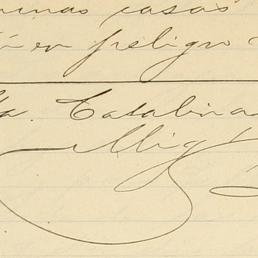 casas
en peligro
Sta. Catalina
Mig